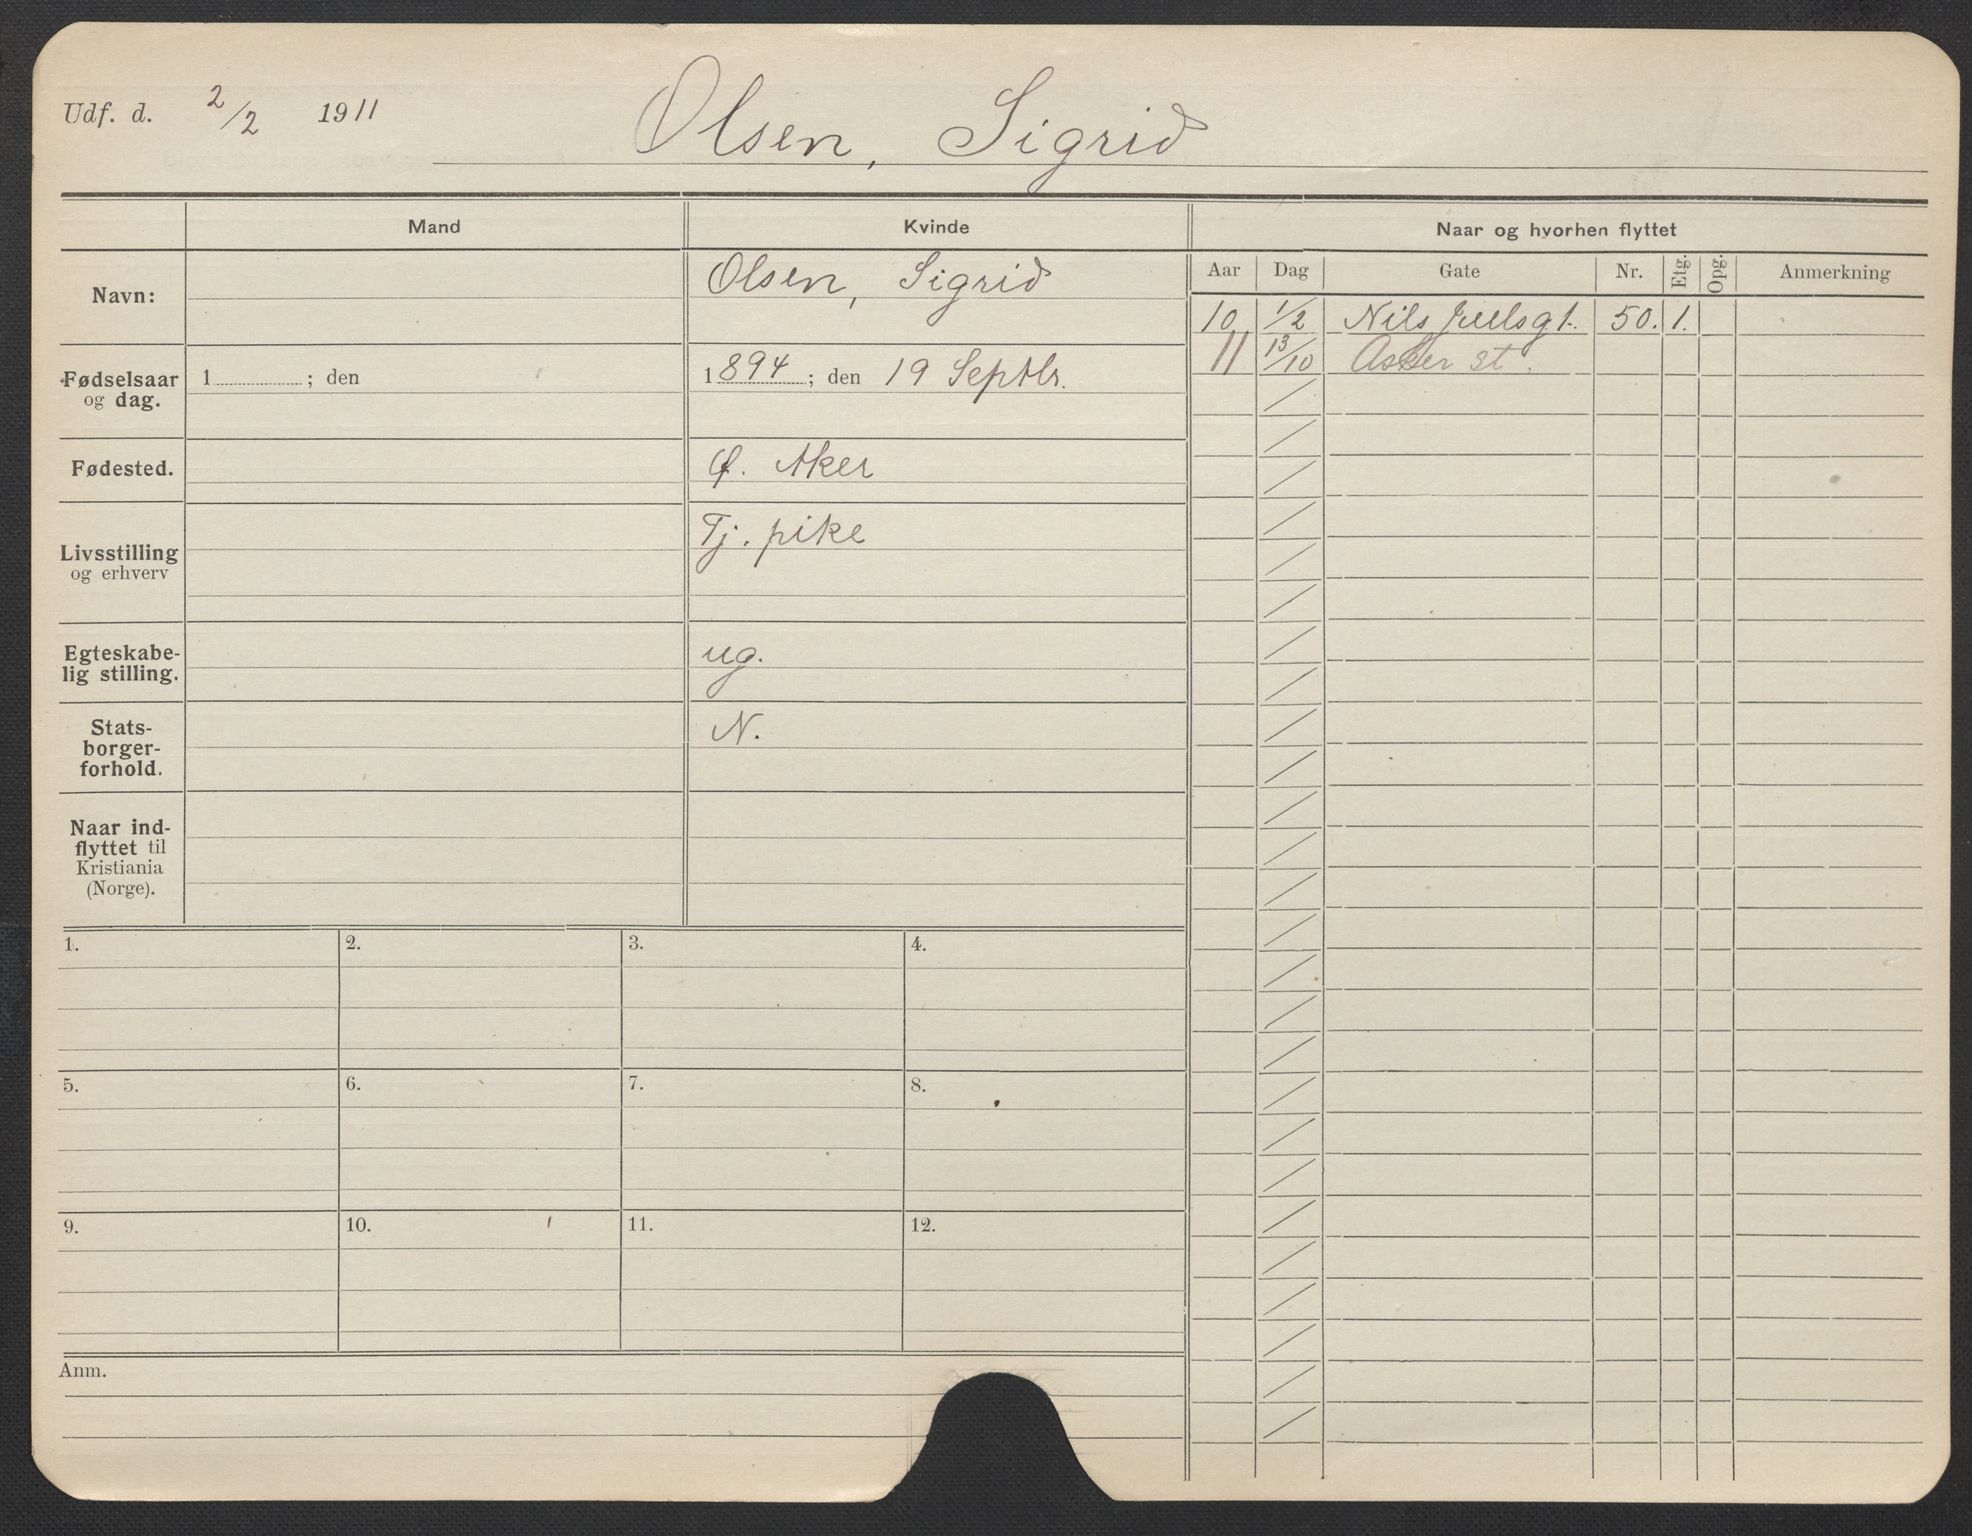 Udf. d. 2/2 1911 Olsen, Sigrid
Mand Kvinde Naar og hvorhen flyttet
Navn: Olsen, Sigrid
Aar Dag Gate Nr. Etg. Opg. Anmerkning
10 1/2 Nils Juelsgt. 50. 1.
11 13/10 Asker st.
Fødselsaar
og dag.
1 ; den
1894; den 19 Septbr.
Fødested. Ø. Aker
Livsstilling
og erhverv
Tj. pike
Egteskabe-
lig stilling.
ug.
Stats-
borger-
forhold.
N.
Naar ind-
flyttet til
Kristiania
(Norge).
1. 2. 3. 4.
5. 6. 7. 8.
9. 10. 11. 12.
Anm.